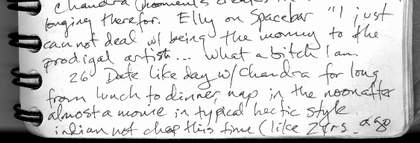 Chandra
longing therefor. Elly on Spacebar "I just
cannot deal w/ being the mommy to the
prodigal artist... What a bitch I am.
26 Date like day w/ Chandra for long
from lunch to dinner, nap in the noonafter
almost a movie in typical hectic style
indian not cheap this time (like 2 yrs. ago